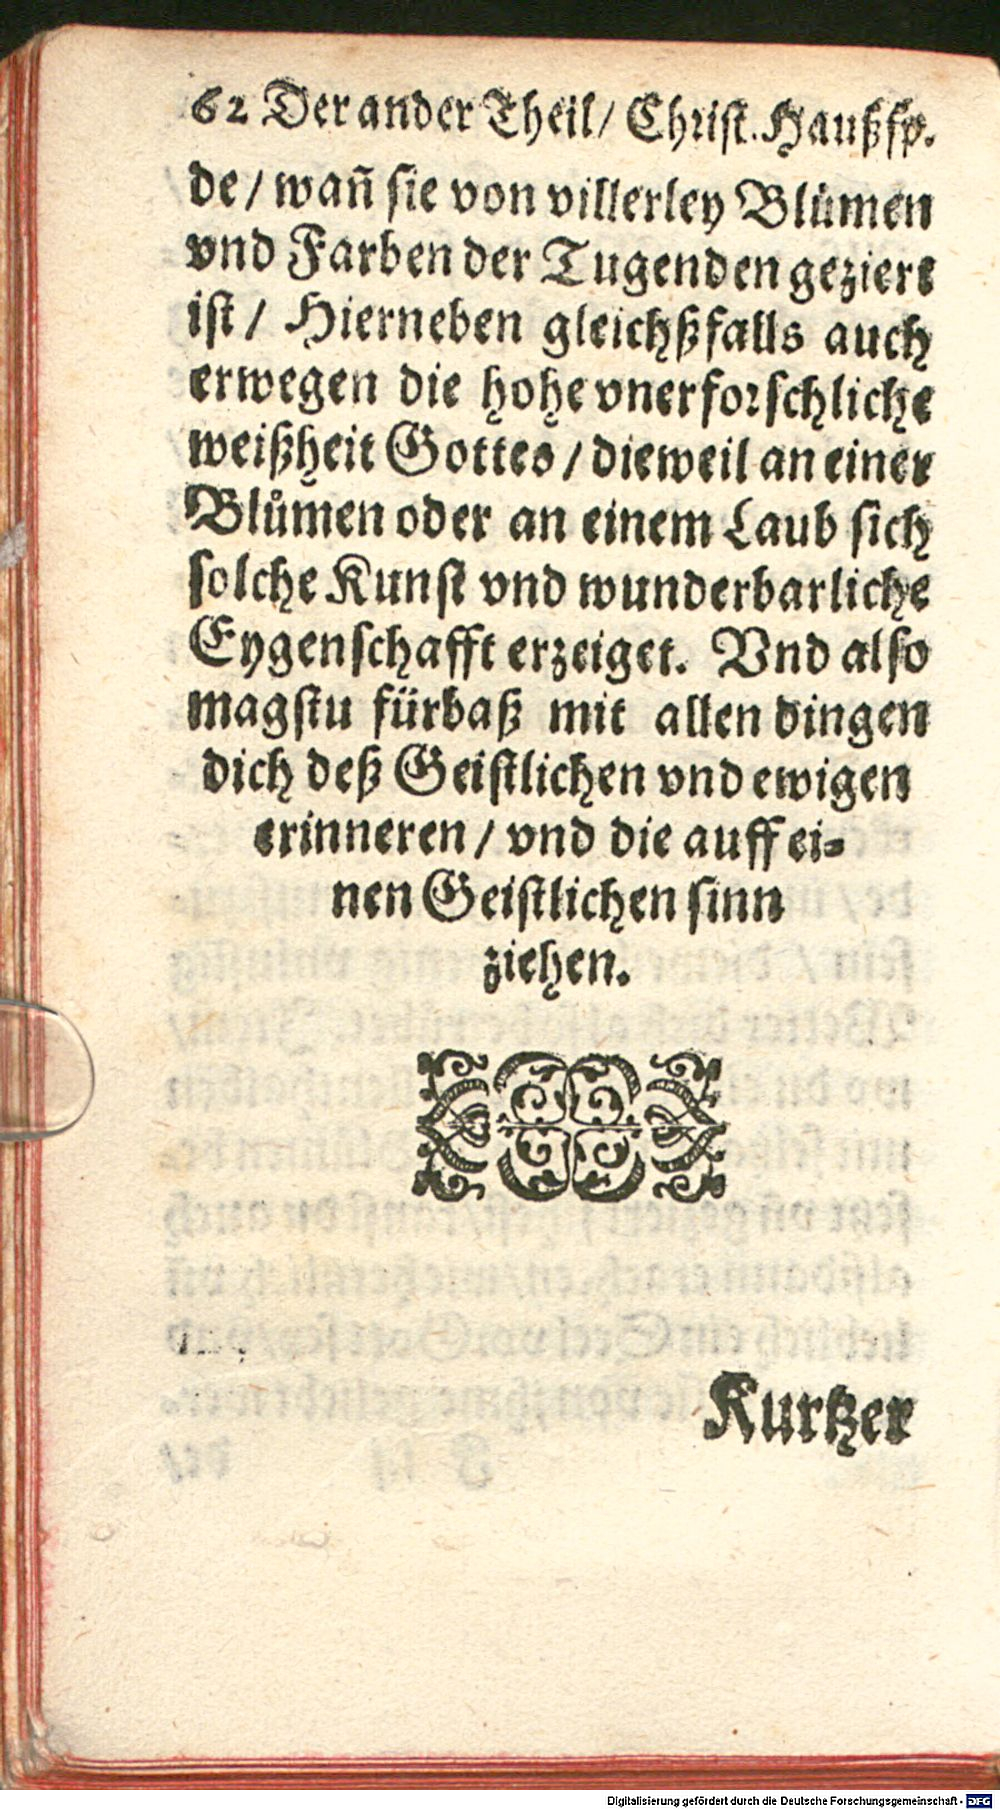 62 Der ander Theil/ Christ. Haußsp.
de/ wañ sie von villerley Blůmen
vnd Farben der Tugenden geziert
ist/ Hierneben gleichßfalls auch
erwegen die hohe vnerforschliche
weißheit Gottes/ dieweil an einer
Blůmen oder an einem Laub sich
solche Kunst vnd wunderbarliche
Eygenschafft erzeiget. Vnd also
magstu fürbaß mit allen dingen
dich deß Geistlichen vnd ewigen
erinneren/ vnd die auff ei-
nen Geistlichen sinn
ziehen.
Kurtzer
Digitalisierung gefördert durch die Deutsche Forschungsgemeinschaft - DFG